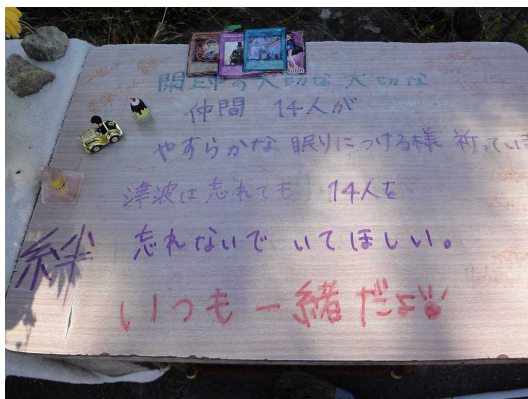 閖上中の大切な大切な
仲間 14人が
やすらかな 眠りにつける様 祈っています
津波は忘れても 14人を
忘れないで いてほしい。
絆
いつも一緒だよ